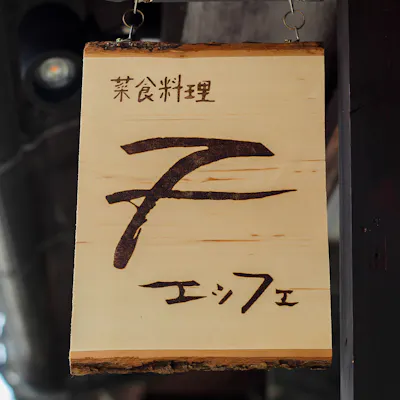 菜食料理
F
エシフェ